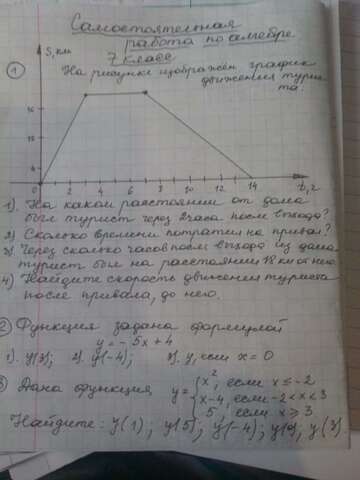 Самостоятельная
работа по алгебре
7 класс
S, км
① На рисунке изображён график
движения турис-
та.
16
4
0 2 4 6 8 10 12 14 t, г
1). На каком расстоянии от дома
был турист через 2 часа после выхода?
2) Сколько времени потратил на привал?
3) Через сколько часов после выхода из дома
турист был на расстоянии 18 км от него
4) Найдите скорость движения туриста
после привала, до него.
② Функция задана формулой
y = - 5x + 4
1). y(3); 2). y(-4); 3). y, если x = 0
3 Дана функция y =
x², если x ≤ -2
x-4, если -2 < x < 3
5, если x ≥ 3
Найдите: y(1); y(5); y(-4); y(0), y(3).